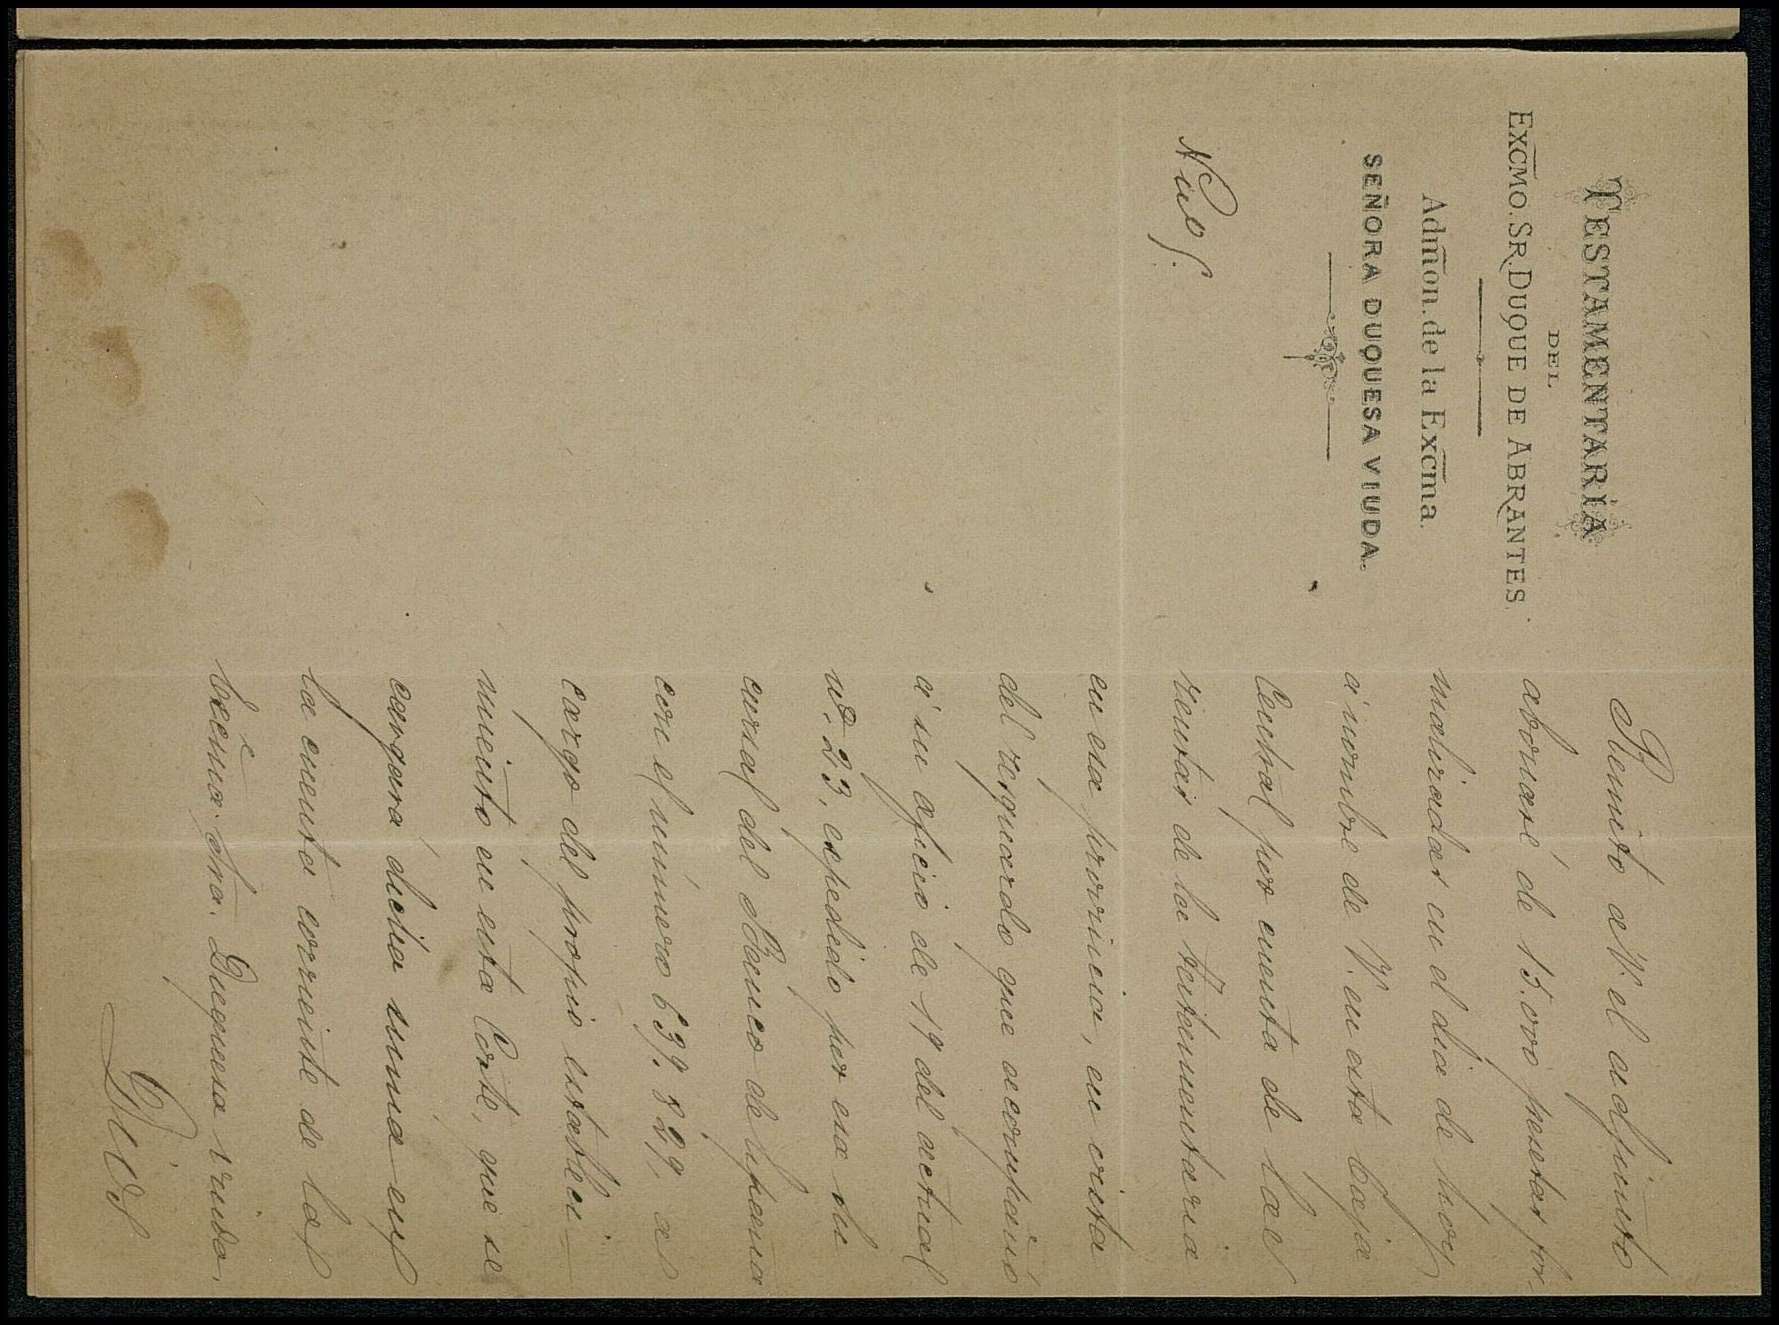 TESTAMENTARÍA
DEL
EXCMO. SR. DUQUE DE ABRANTES.
Admon. de la Excma.
SEÑORA DUQUESA VIUDA.
Remito a V. el adjunto
abonaré de 15.000 pesetas for-
malizadas en el dia de hoy
á nombre de V. en esta Caja
Central por cuenta de las
rentas de la testamentaria
en esa provincia, en vista
del resguardo que acompañó
á su oficio de 19 del actual
nº 23, expedido por esa su
cursal del Banco de España
con el número 639.829, á
cargo del propio estableci-
miento en esta Corte, que se
cargará dicha suma en
la cuenta corriente de la
Excma. Sra. Duquesa viuda.
Dios